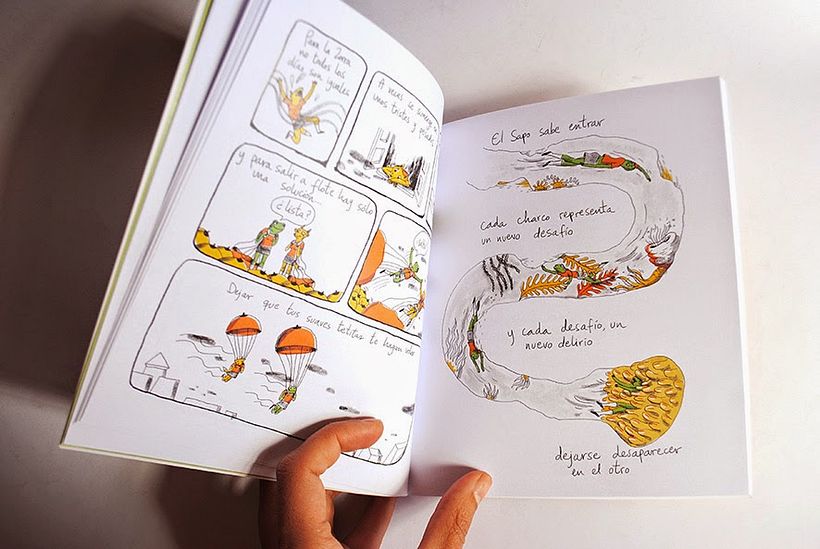 Para la Zorra
no todos los
días son iguales
A veces se sumerge en
unos tristes y
y para salir a flote hay sólo
una solución...
¿Lista?
Dejar que tus suaves tetitas te hagan
El Sapo sabe entrar
cada charco representa
un nuevo desafío
y cada desafío, un
nuevo delirio
dejarse desaparecer
en el otro